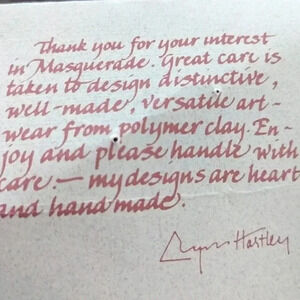 Thank you for your interest
in Masquerade. Great care is
taken to design distinctive,
well-made, versatile art-
wear from polymer clay. En-
joy and please handle with
care. — my designs are heart
and hand made.
Lynn Hartley